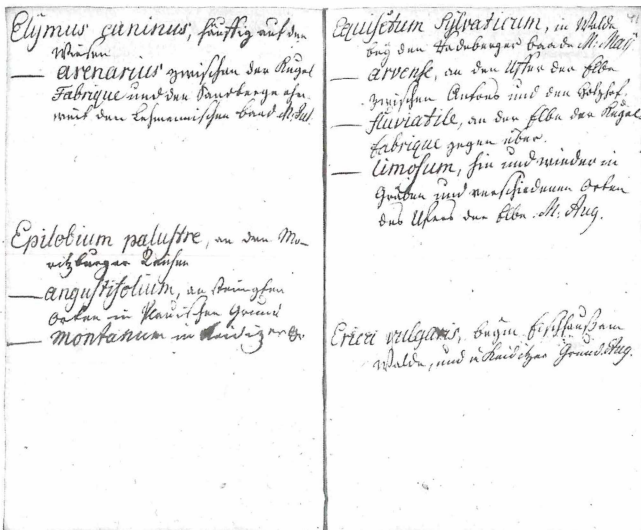 Elymus caninus, häuffig auf den
Wiesen
— arenarius zwischen der Kugel
Fabrique und den Sandberge ohn
weit den Lehmannischen Baad M. Jul.
Epilobium palustre, an den Mo-
ritzburger Teichen
— angustifolium, an steinigten
Orten in Plauischen Grund
— montanum in
Equisetum Sylvaticum, in Walde
bey den Radeberger Baade M. Maji
— arvense, an den Uffer der Elbe
zwischen Antons und den Holzhof.
— fluviatile, an der Elbe der Kugel
Fabrique gegen über.
— limosum, hin und wieder in
Gräben und verschiedenen Orten
des Ufers der Elbe. M. Aug.
Erica vulgaris, beym Fischhauß am
Walde, und Grund. Aug.